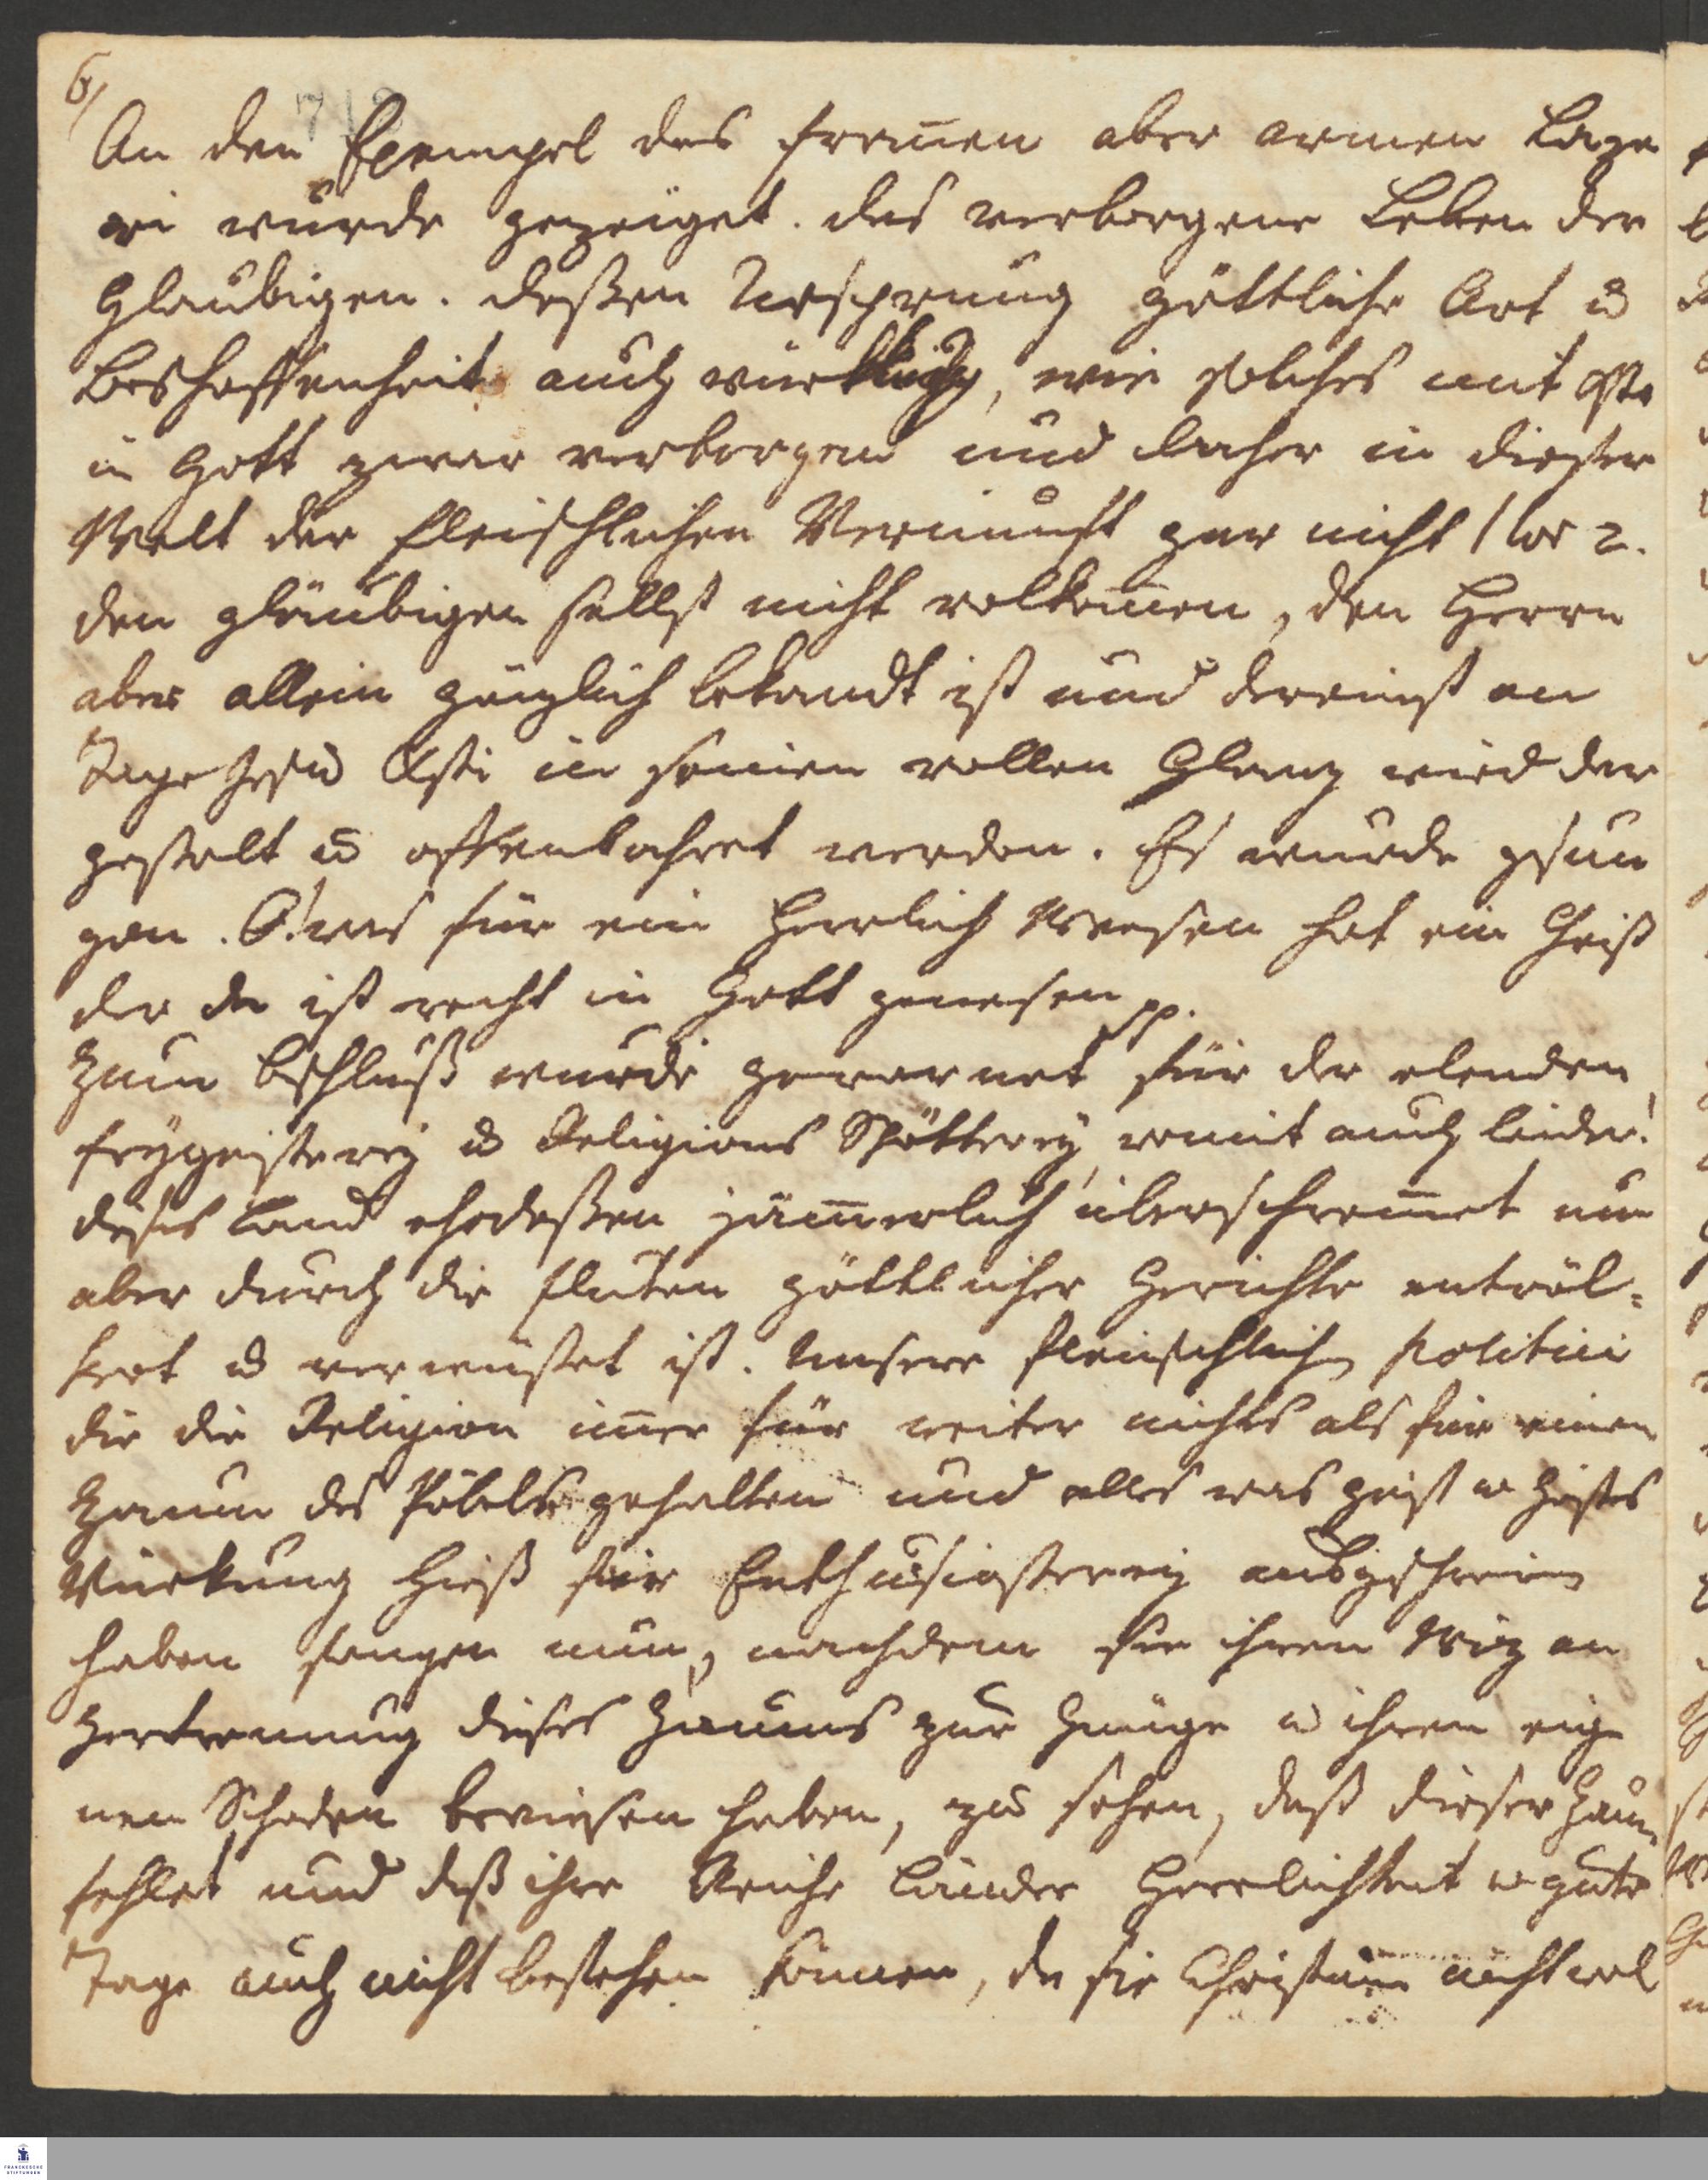 6/
An den Exempel des fromen aber armen Laza
ri wurde gezeiget. das verborgene Leben der
Glaubigen. deßen Ursprung göttliche Art u
Beschaffenheit auch würklich, wie solches mit Xsto
in Gott zwar verborgen und daher in dieser
Welt der fleischlichen Vernunft gar nicht 1 Cor 2.
den gläubigen selbst nicht volkom̅en, den Herrn
aber allein gäntzlich bekandt ist und dereinst an
Tage Jesu Xsti in seinen vollen Glanz wird dar
gestelt u offenbahret werden. Es wurde gesun
gen. O! was für ein Herrlich Wesen hat ein Christ
der da ist recht in Gott genesen pp.
Zum Beschluß wurde gewarnet für der elenden
freygeisterey u Religions Spötterey, womit auch leider!
dieses Land ehedeßen jäm̅erlich überschwem̅et nun
aber durch die fluten göttlicher Gerichte entvöl-
kert u verwüstet ist. Unsere fleischlichen politici
die die Religion im̅er für weiter nichts als für einen
Zaum des Pöbels gehalten und alles was geist u geistes
Würkung hieß für Enthusiasterey ausgeschrien
haben fangen nun, nachdem sie ihren Witz an
Zertrennung dieses Zaums zur Gnüge u ihren eige
nen Schaden bewiesen haben, zu sehen, daß dieser Zaum
fehlet und daß ihre Reiche Länder Herrlichkeit u gute
Tage auch nicht bestehen können, da sie Christum nicht wol
FRANCKESCHE STIFTUNGEN